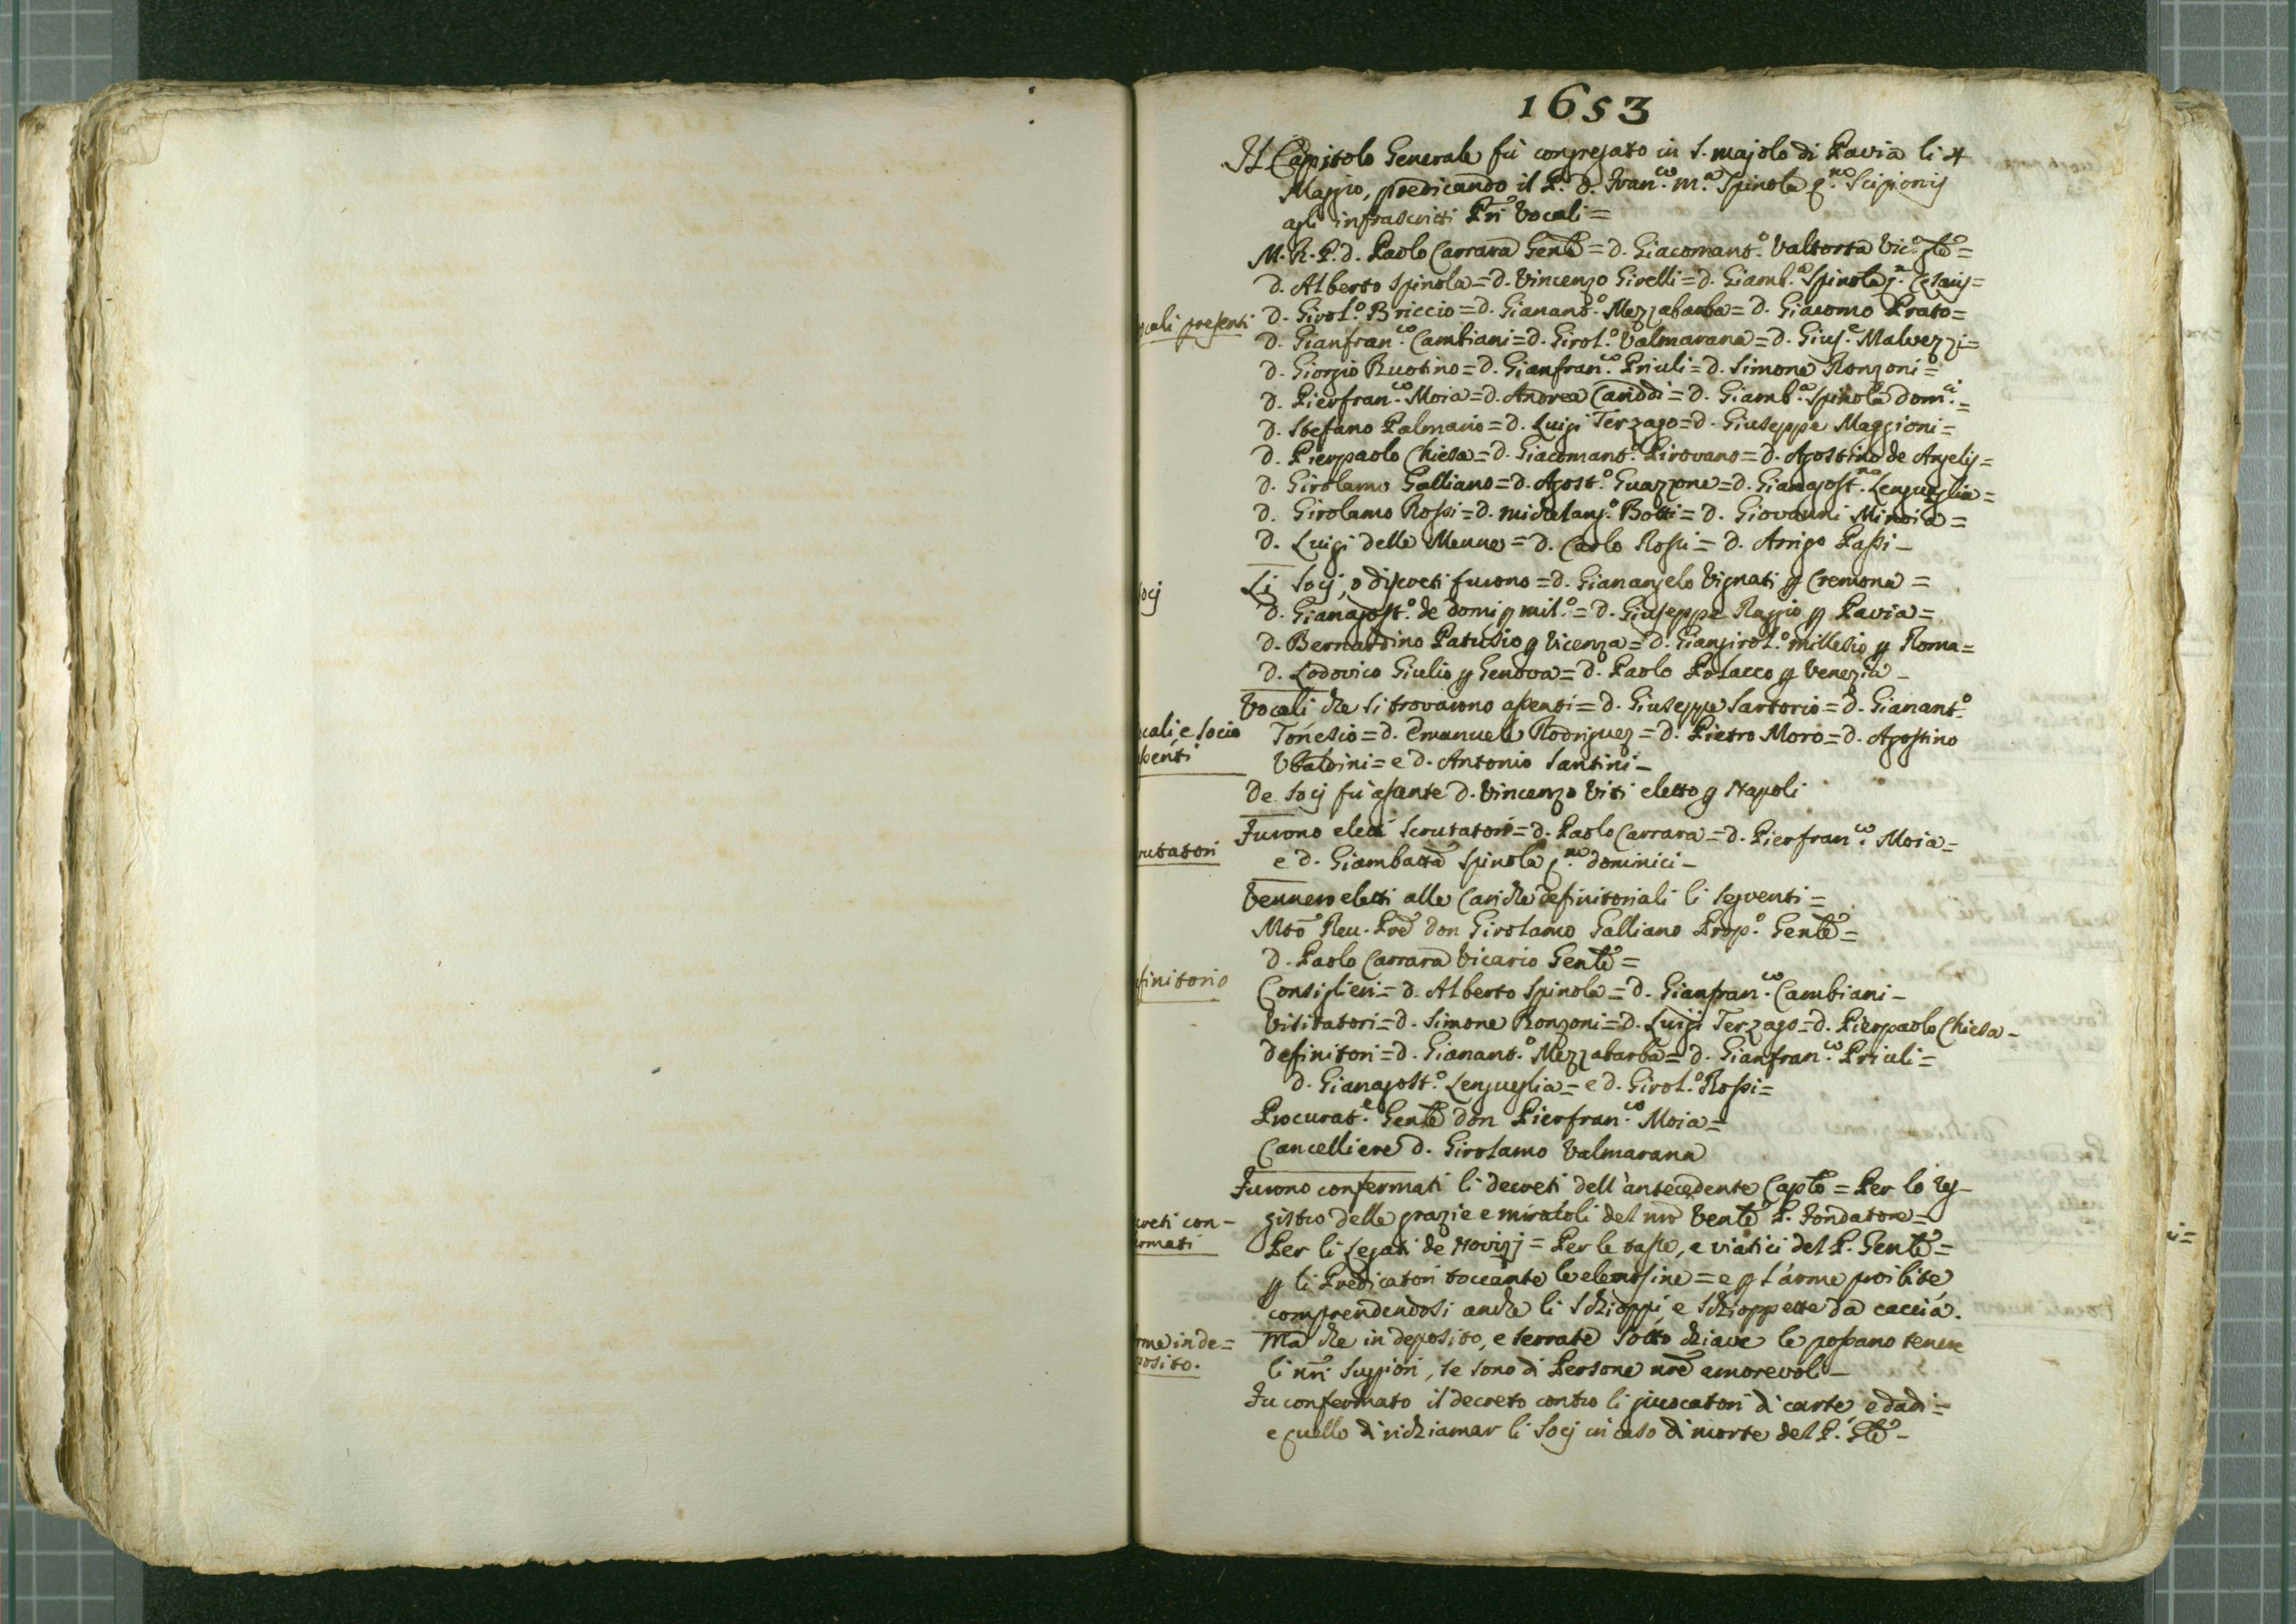 1653
Il Capitolo Generale fù congregato in S. majolo di Pavia li 4
Maggio, predicando il P. D. Fran.co M.a Spinola q.m Scipionis
agli infrascritti Pri Vocali =
M. R. P. D. Paolo Carrara Genle = D. Giacomant.o Valtorta Vic.o Gle =
D. Alberto Spinola = D. Vincenzo Girelli = D. Giamb.a Spinola q.m Cesaris =
ocali presenti
D. Girol.o Briccio = D. Gianant.o Mezzabarba = D. Giacomo Prato =
D. Gianfran.co Cambiani = D. Girol.o Valmarana = D. Gius.e Malvezzi =
D. Giorgio Ruotino = D. Gianfran.co Priuli = D. Simone Ronzoni =
D. Pierfran.co Moia = D. Andrea Cariddi = D. Giamb.a Spinola Dom.ci =
D. Stefano Palmario = D. Luigi Terzago = D. Giuseppe Maggioni =
D. Pierpaolo Chiesa = D. Giacomant.o Pirovano = D. Agostino de Angelis =
D. Girolamo Galliano = D. Agost.o Guazzone = D. Gianagost.no Lengueglia =
D. Girolamo Rossi = D. Michelang.o Botti = D. Giovanni Miroia =
D. Luigi delle Menne = D. Carlo Rossi = D. Arrigo Passi -
ocj
Li Socj, o discreti furono = D. Gianangelo Vignati p Cremona =
D. Gianagost.o de Domi p mil.o = D. Giuseppe Raggio p Pavia =
D. Bernardino Patusio p Vicenza = D. Giangirol.o millesio p Roma =
D. Lodovico Giulio p Genova = D. Paolo Polacco p Venezia -
ocali, e Socio
ssenti
Vocali che si trovarono assenti = D. Giuseppe Sartorio = D. Gianant.o
Tonesio = D. Emanuele Rodriguez = D. Pietro Moro = D. Agostino
Ubaldini = e D. Antonio Santini -
De Socj fù assente D. Vincenzo Viti eletto p Napoli
rutatori
Furono eletti Scrutatori = D. Paolo Carrara = D. Pierfran.co Moia =
e D. Giambatta Spinola q.m Dominici -
Vennero eletti alle Cariche definitoriali li seguenti =
Mto Reu. Pre Don Girolamo Galliano Prep.o Genle =
D. Paolo Carrara Vicario Genle =
efinitorio
Consiglieri = D. Alberto Spinola = D. Gianfran.co Cambiani -
Visitatori = D. Simone Ronzoni = D. Luigi Terzago = D. Pierpaolo Chiesa -
Definitori = D. Gianant.o Mezzabarba = D. Gianfran.co Priuli =
D. Gianagost.o Lengueglia = e D. Girol.o Rossi =
Procurat.e Genle Don Pierfran.co Moia =
Cancelliere D. Girolamo Valmarana
Furono confermati li decreti dell' antecedente Caplo = Per lo re-
creti con-
rmati
gistro delle grazie e miracoli del nro Venle P. Fondatore =
Per li legati de Novizj = Per le tasse, e viatici del P. Genle =
p li Predicatori toccante le elemosine = e p l'arme proibite
comprendendosi anche li Schioppi e Schioppette da caccia.
rme in de=
posito.
Ma che in deposito, e serrate sotto chiave le possano tenere
li nri Suppiori, se sono di Persone nre amorevoli -
Fu confermato il decreto contro li giuocatori di carte e dadi =
e quello di richiamar li Socj in caso di morte del P. Gle -